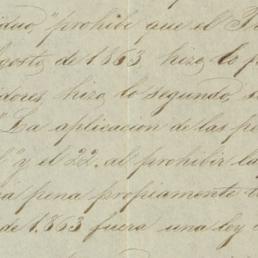 iduo," prohibe que el P
Agosto de 1863 hizo lo p
idores, hizo lo segundo, s
"La aplicacion de las pe
" y el 22. al prohibir la
pena propiamente t
de 1863 fuera una ley